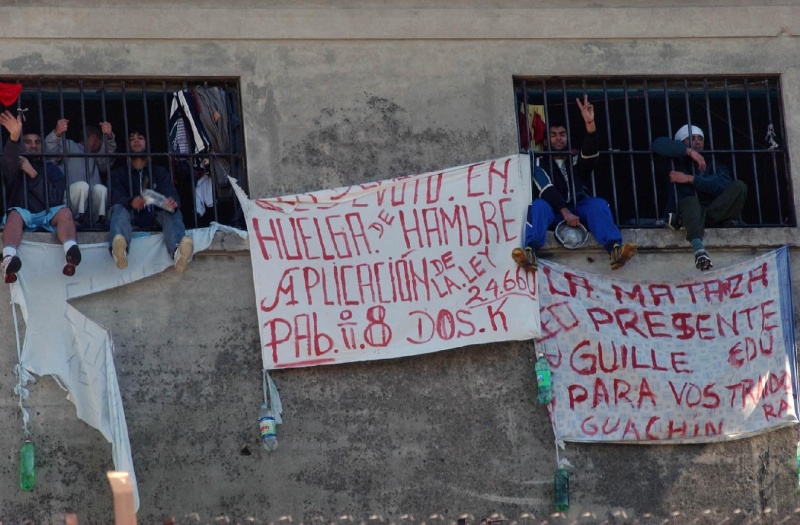 DEVOTO. EN.
HUELGA. DE HAMBRE
APLICACIÓN DE LA. LEY
24.660
PAB. II. 8 DOS. K
LA MATANZA
PRESENTE
GUILLE EDU
PARA VOS
GUACHÍN